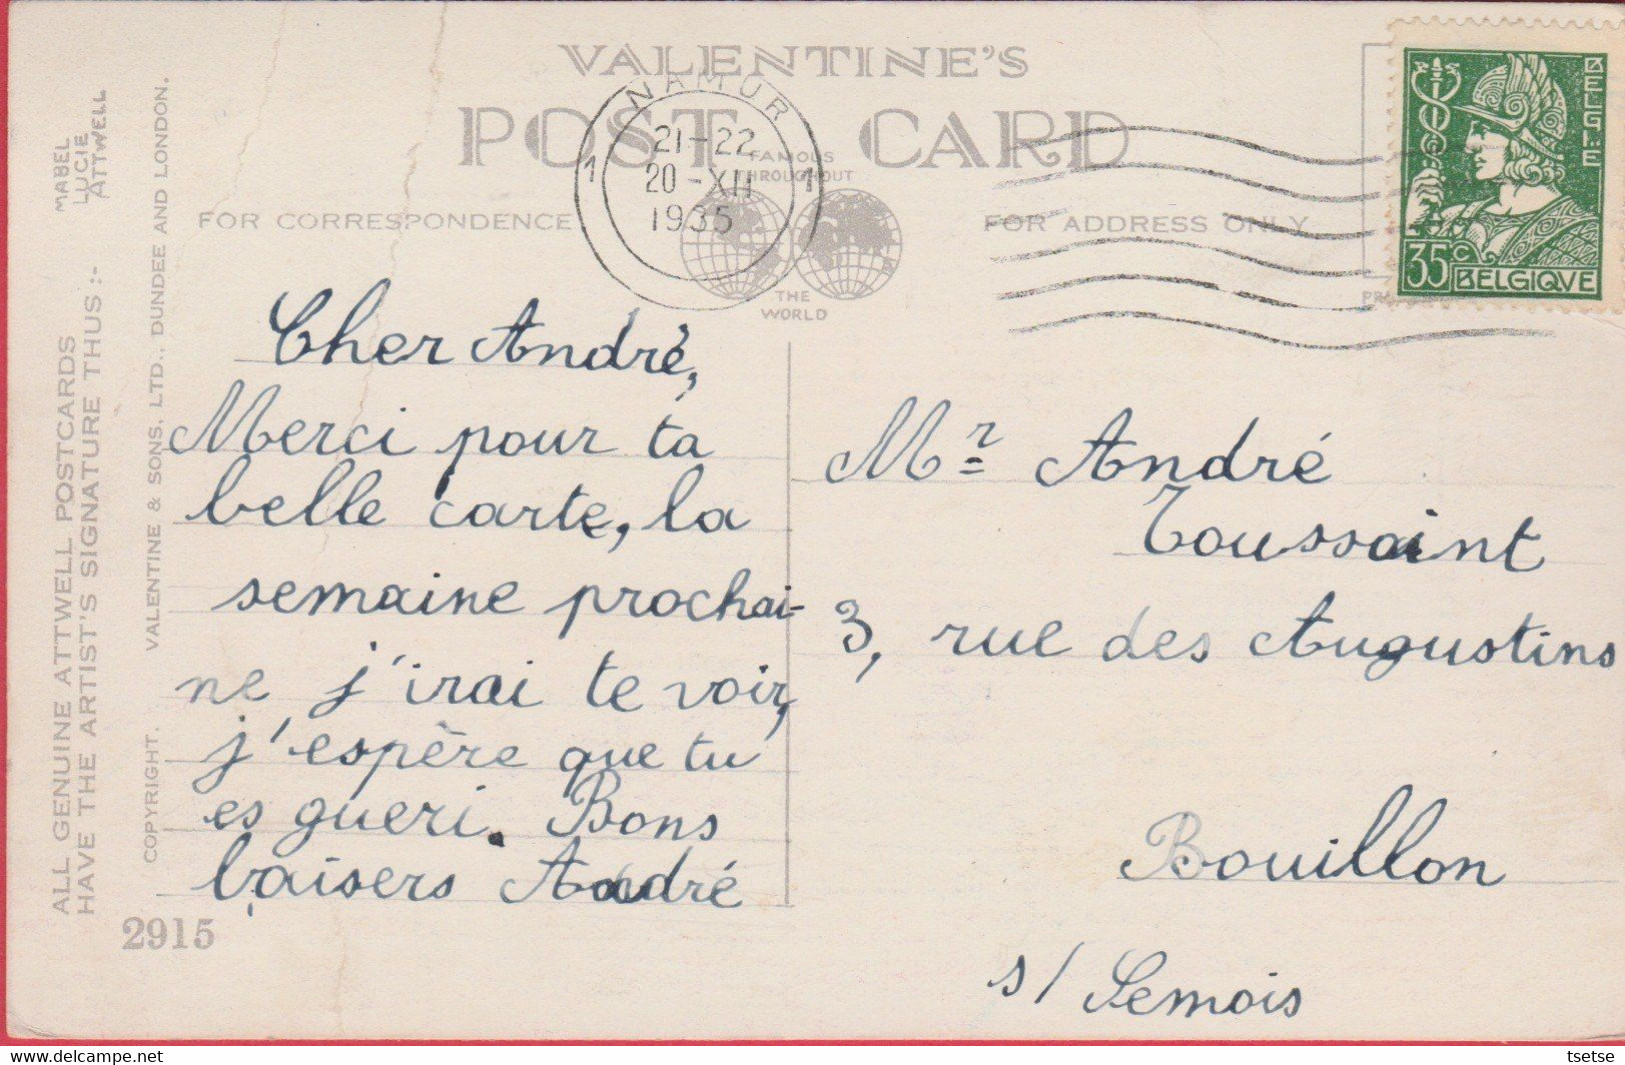 VALENTINE'S
POST CARD
FAMOUS
THROUGHOUT
THE
WORLD
FOR CORRESPONDENCE
FOR ADDRESS ONLY
NAMUR
1 1
21-22
20-XII
1935
BELGIË
35C BELGIQVE
MABEL
LUCIE
ATTWELL
ALL GENUINE ATTWELL POSTCARDS
HAVE THE ARTIST'S SIGNATURE THUS :-
COPYRIGHT. VALENTINE & SONS, LTD., DUNDEE AND LONDON.
2915
Cher André,
Merci pour ta
belle carte, la
semaine prochai-
ne j'irai te voir,
j'espère que tu
es gueri. Bons
baisers André
Mr André
Toussaint
3, rue des Augustins
Bouillon
s/ Semois
tsetse